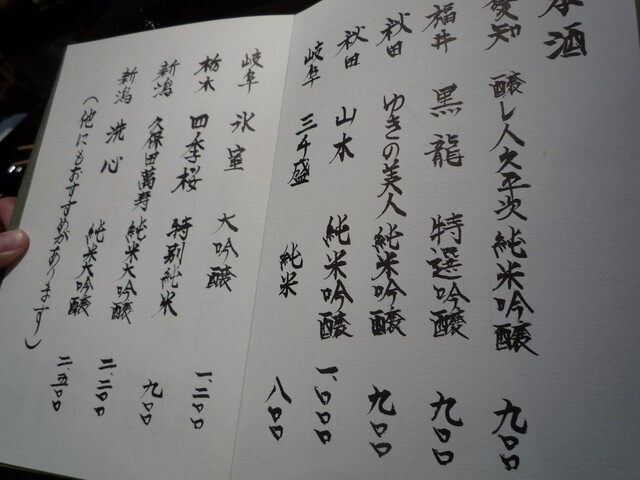 本酒
愛知 醸し人九平次 純米吟醸 九〇〇
福井 黒龍 特選吟醸 九〇〇
秋田 ゆきの美人 純米吟醸 九〇〇
秋田 山本 純米吟醸 一、〇〇〇
岐阜 三千盛 純米 八〇〇
岐阜 氷室 大吟醸 一、二〇〇
栃木 四季桜 特別純米 九〇〇
新潟 久保田萬寿 純米大吟醸 二、二〇〇
新潟 洗心 純米大吟醸 二、五〇〇
(他にもおすすめがあります)